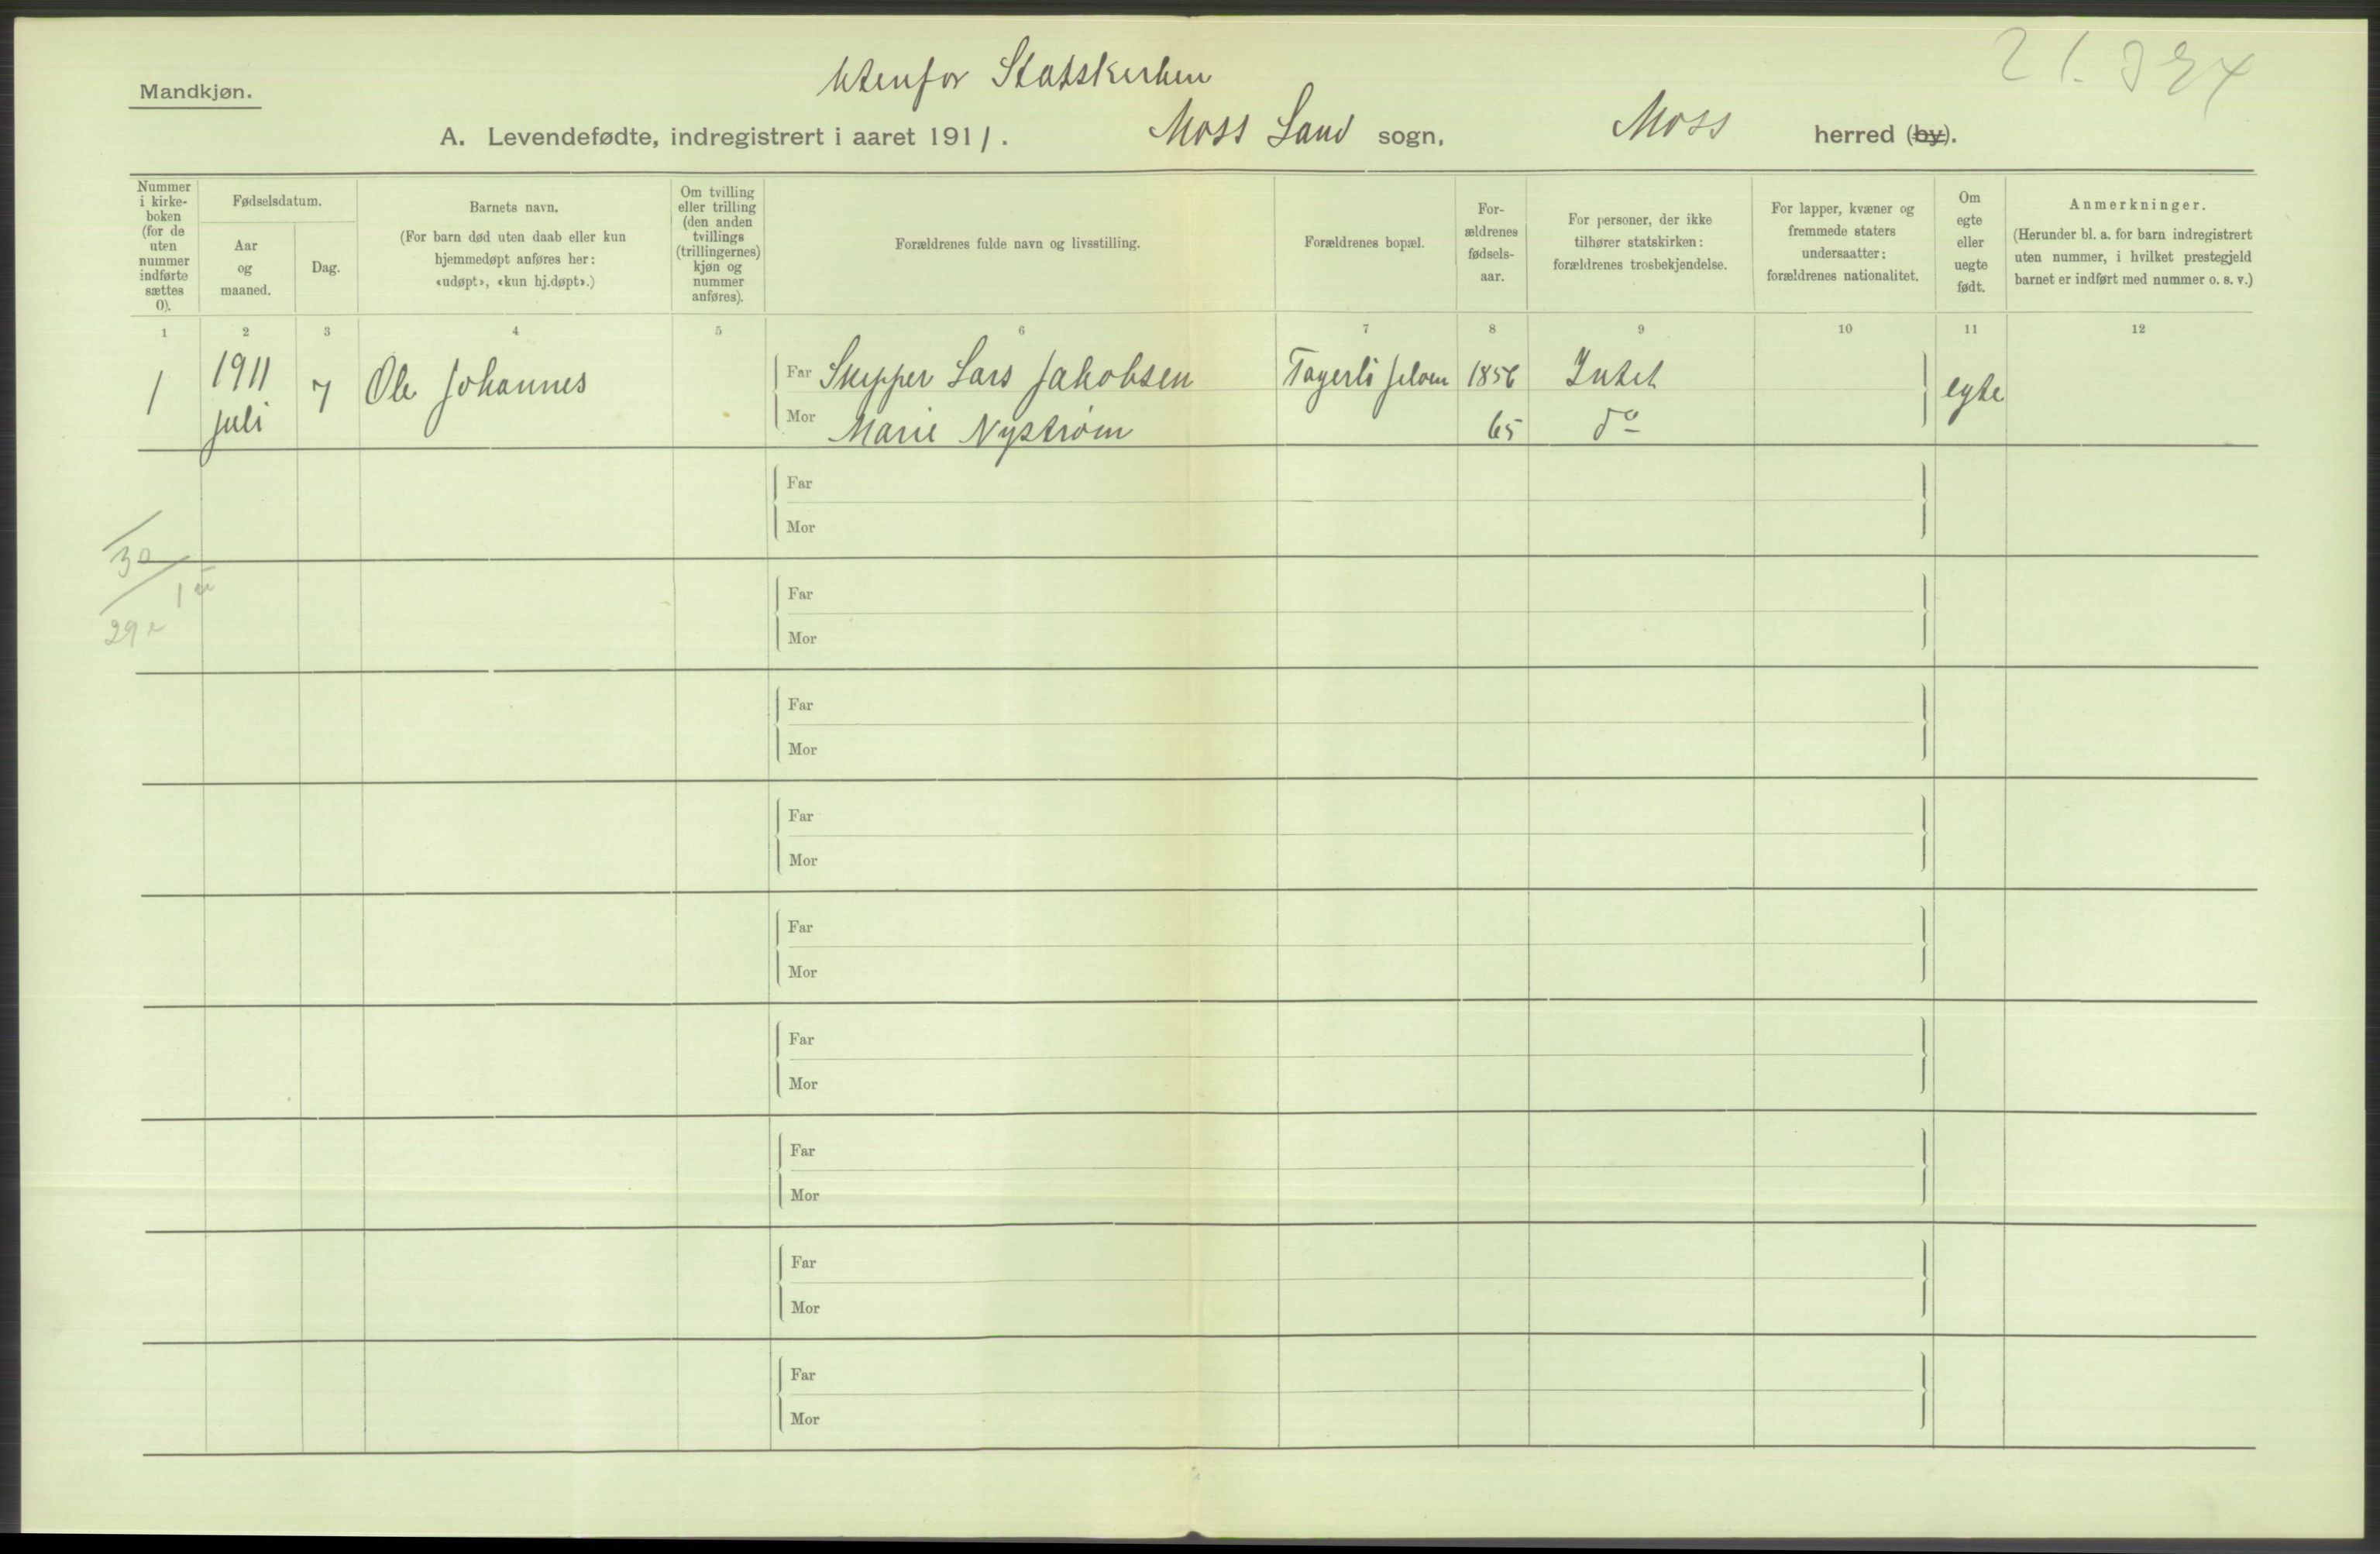 Utenfor Statskirken
Mandkjøn.
A. Levendefødte, indregistrert i aaret 1911. Moss Land sogn, Moss herred (by).
Nummer i kirke-boken (for de uten nummer indførte sættes 0).
Fødselsdatum.
Aar og maaned.
Dag.
Barnets navn.
(For barn død uten daab eller kun hjemmedøpt anføres her: «udøpt», «kun hj.døpt».)
Om tvilling eller trilling (den anden tvillings (trillingernes) kjøn og nummer anføres).
Forældrenes fulde navn og livsstilling.
Forældrenes bopæl.
For-ældrenes fødsels-aar.
For personer, der ikke tilhører statskirken: forældrenes trosbekjendelse.
For lapper, kvæner og fremmede staters undersaatter: forældrenes nationalitet.
Om egte eller uegte født.
Anmerkninger.
(Herunder bl. a. for barn indregistrert uten nummer, i hvilket prestegjeld barnet er indført med nummer o. s. v.)
1 2 3 4 5 6 7 8 9 10 11 12
1 1911 juli 7 Ole Johannes Far Skipper Lars Jakobsen 1856 Intet egte
Mor Marie Nystrøm 65 do
Far
Mor
Far
Mor
Far
Mor
Far
Mor
Far
Mor
Far
Mor
Far
Mor
Far
Mor
Far
Mor
30